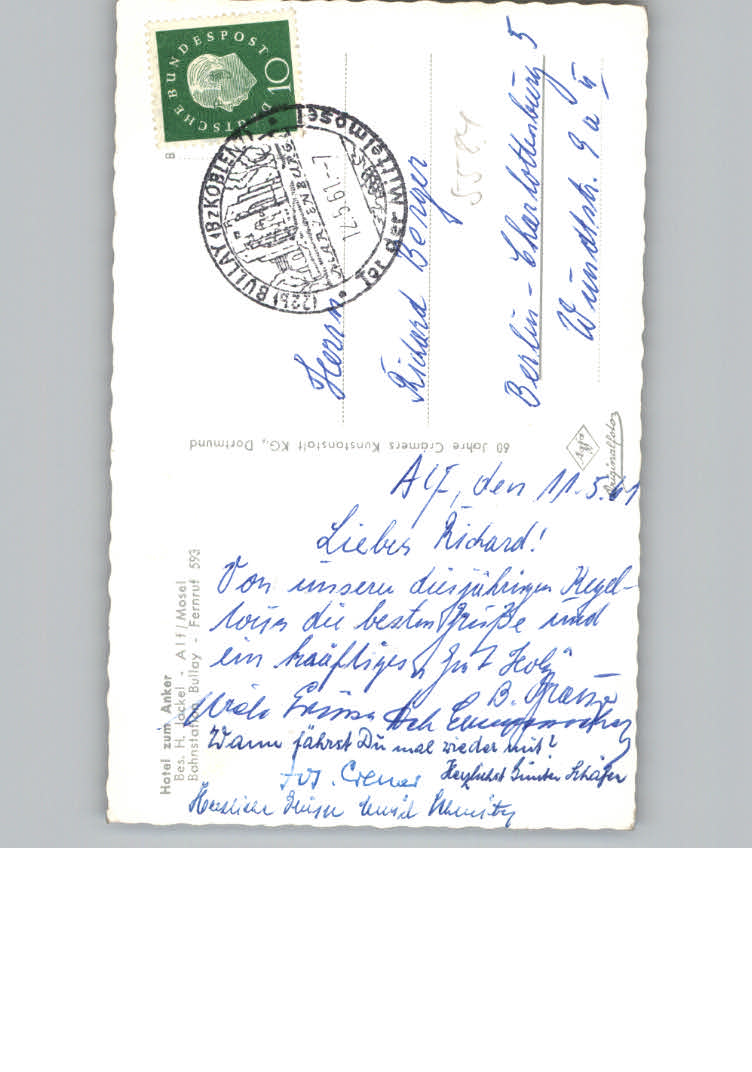 DEUTSCHE BUNDESPOST
10
(22b) BULLAY (Bz KOBLENZ)
MARIENBURG
12.5.61.-7
Tor der Mittelmosel
5584
Herrn
Richard Berger
Berlin-Charlottenburg 5
Wundtstr. 9a II
60 Jahre Cramers Kunstanstalt KG., Dortmund
Originalfoto
Hotel zum Anker
Bes. H. Jackel - Alf/Mosel
Bahnstation Bullay - Fernruf 593
Alf, den 11.5.61
Lieber Richard!
Von unserer diesjährigen Kegel-
die besten Grüße und
ein kräftiges Gut Holz
B.
Viele Grüsse
Wann fährst Du mal wieder mit?
Jos. Cremer
Herzlichst Günter Schäfer
Herzliche Grüsse Schmitz